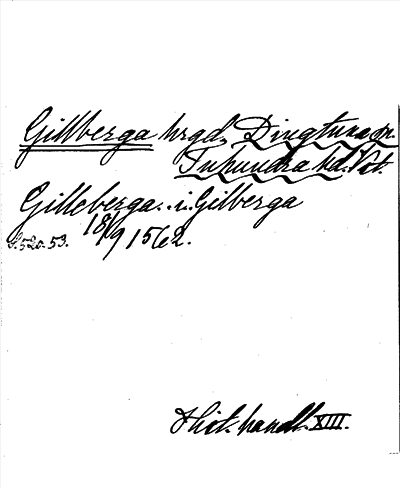 Gillberga hrgd, Dingtuna sn.
Tuhundra hd. Vstm.
Gilleberga. i. Gilberga
18/9 1562.
S. 520. 53.
Hist. handl. XIII.